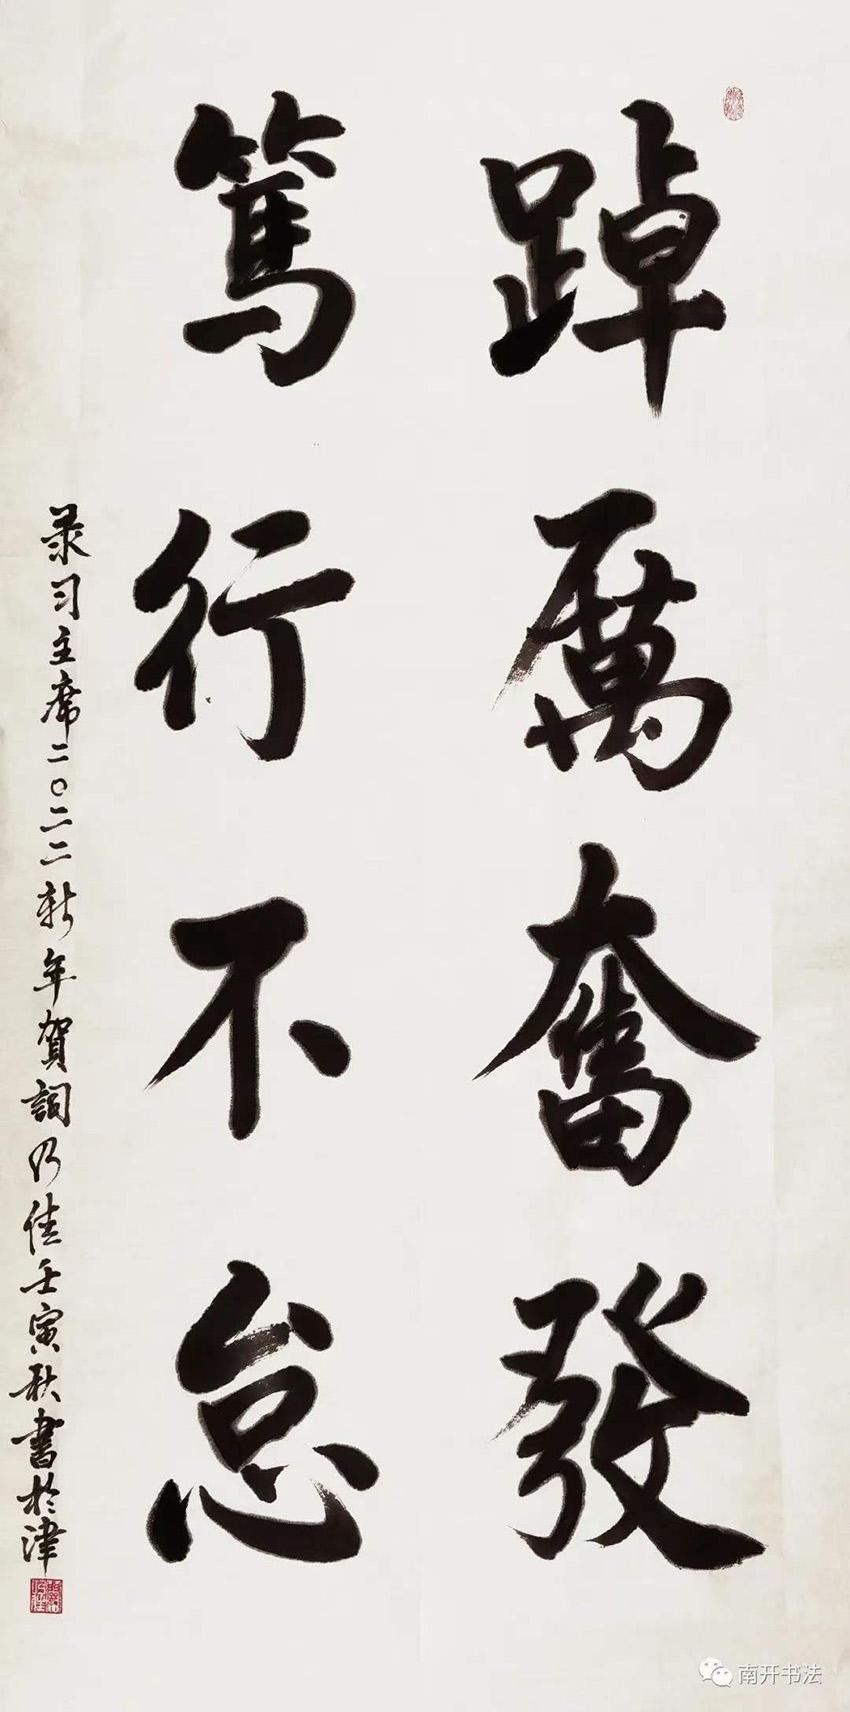 踔厲奮發
篤行不怠
录习主席二〇二二新年賀詞乃佳壬寅秋書於津
南开书法